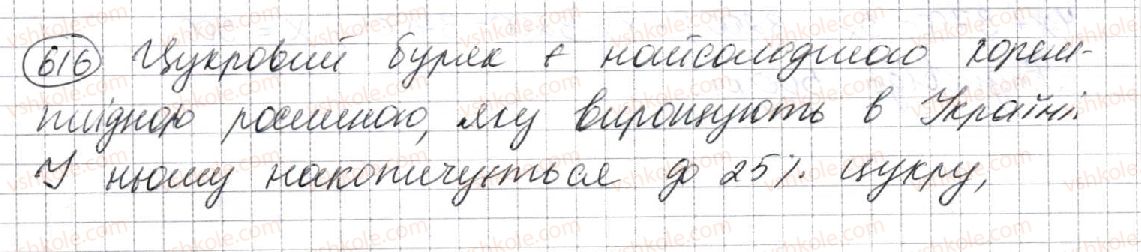 616 Цукровий буряк є найсолодшою корене-
плідною рослиною, яку вирощують в Україні.
У ньому накопичується до 25% цукру,